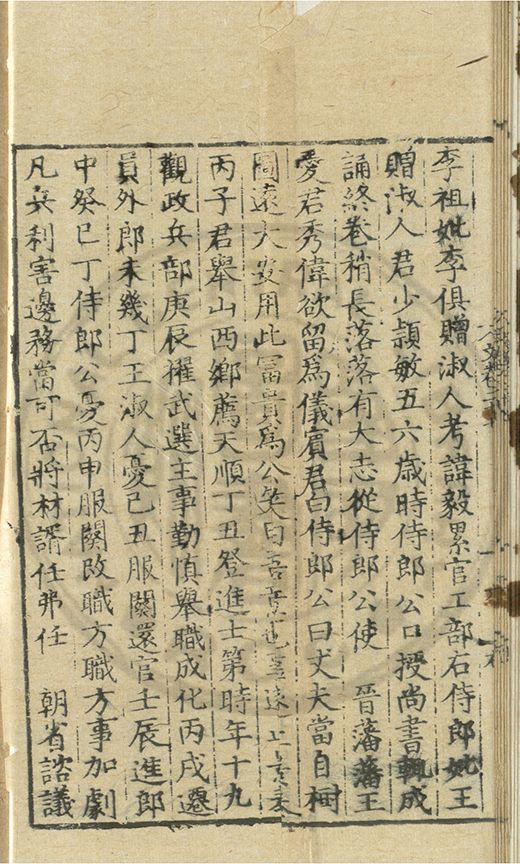 李祖妣李俱贈淑人考諱毅累官工部右侍郎妣王
贈淑人君少穎敏五六歳時侍郎公口授尚書輒成
誦終卷稍長落落有大志從侍郎公使　晉藩藩王
愛君秀偉欲留為儀賓君白侍郎公曰丈夫當自樹
圖遠大安用此冨貴為公笑曰吾
丙子君舉山西鄉薦天順丁丑登進士第時年十九
觀政兵部庚辰擢武選主事勤慎舉職成化丙戌遷
員外郎未幾丁王淑人憂己丑服闋還官壬辰進郎
中癸巳丁侍郎公憂丙申服闋改職方職方事加劇
凡兵利害邊務當可否將材諝任弗任　朝省諮議